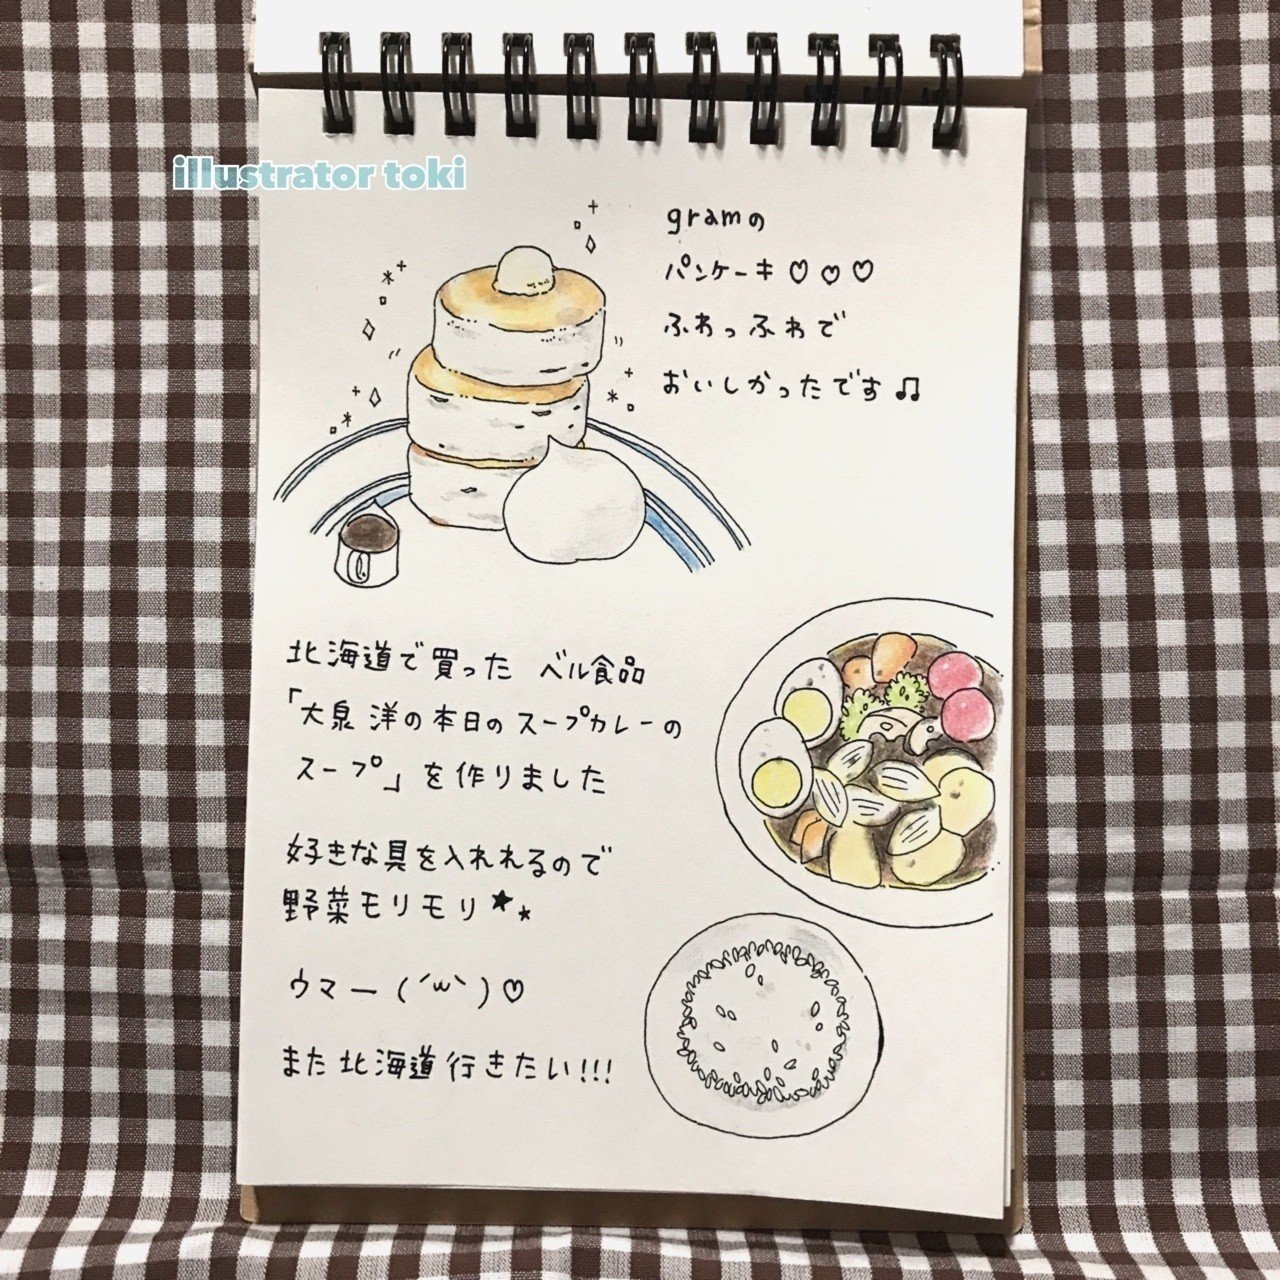 illustrator toki
gramの
パンケーキ♡♡♡
ふわっふわで
おいしかったです♫
北海道で買った ベル食品
「大泉 洋の本日のスープカレーの
スープ」を作りました
好きな具を入れれるので
野菜モリモリ★★
ウマー(´w`)♡
また北海道行きたい!!!